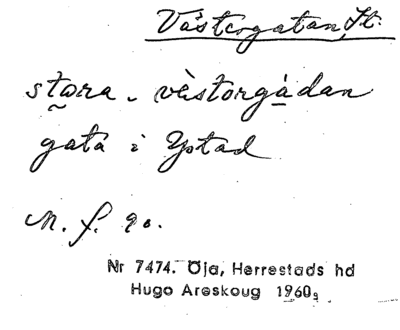 Västergatan, St.
stora. vàstorgådan
gata i Ystad
M. f. 90.
Nr 7474. Öja, Herrestads hd
Hugo Areskoug 1960.